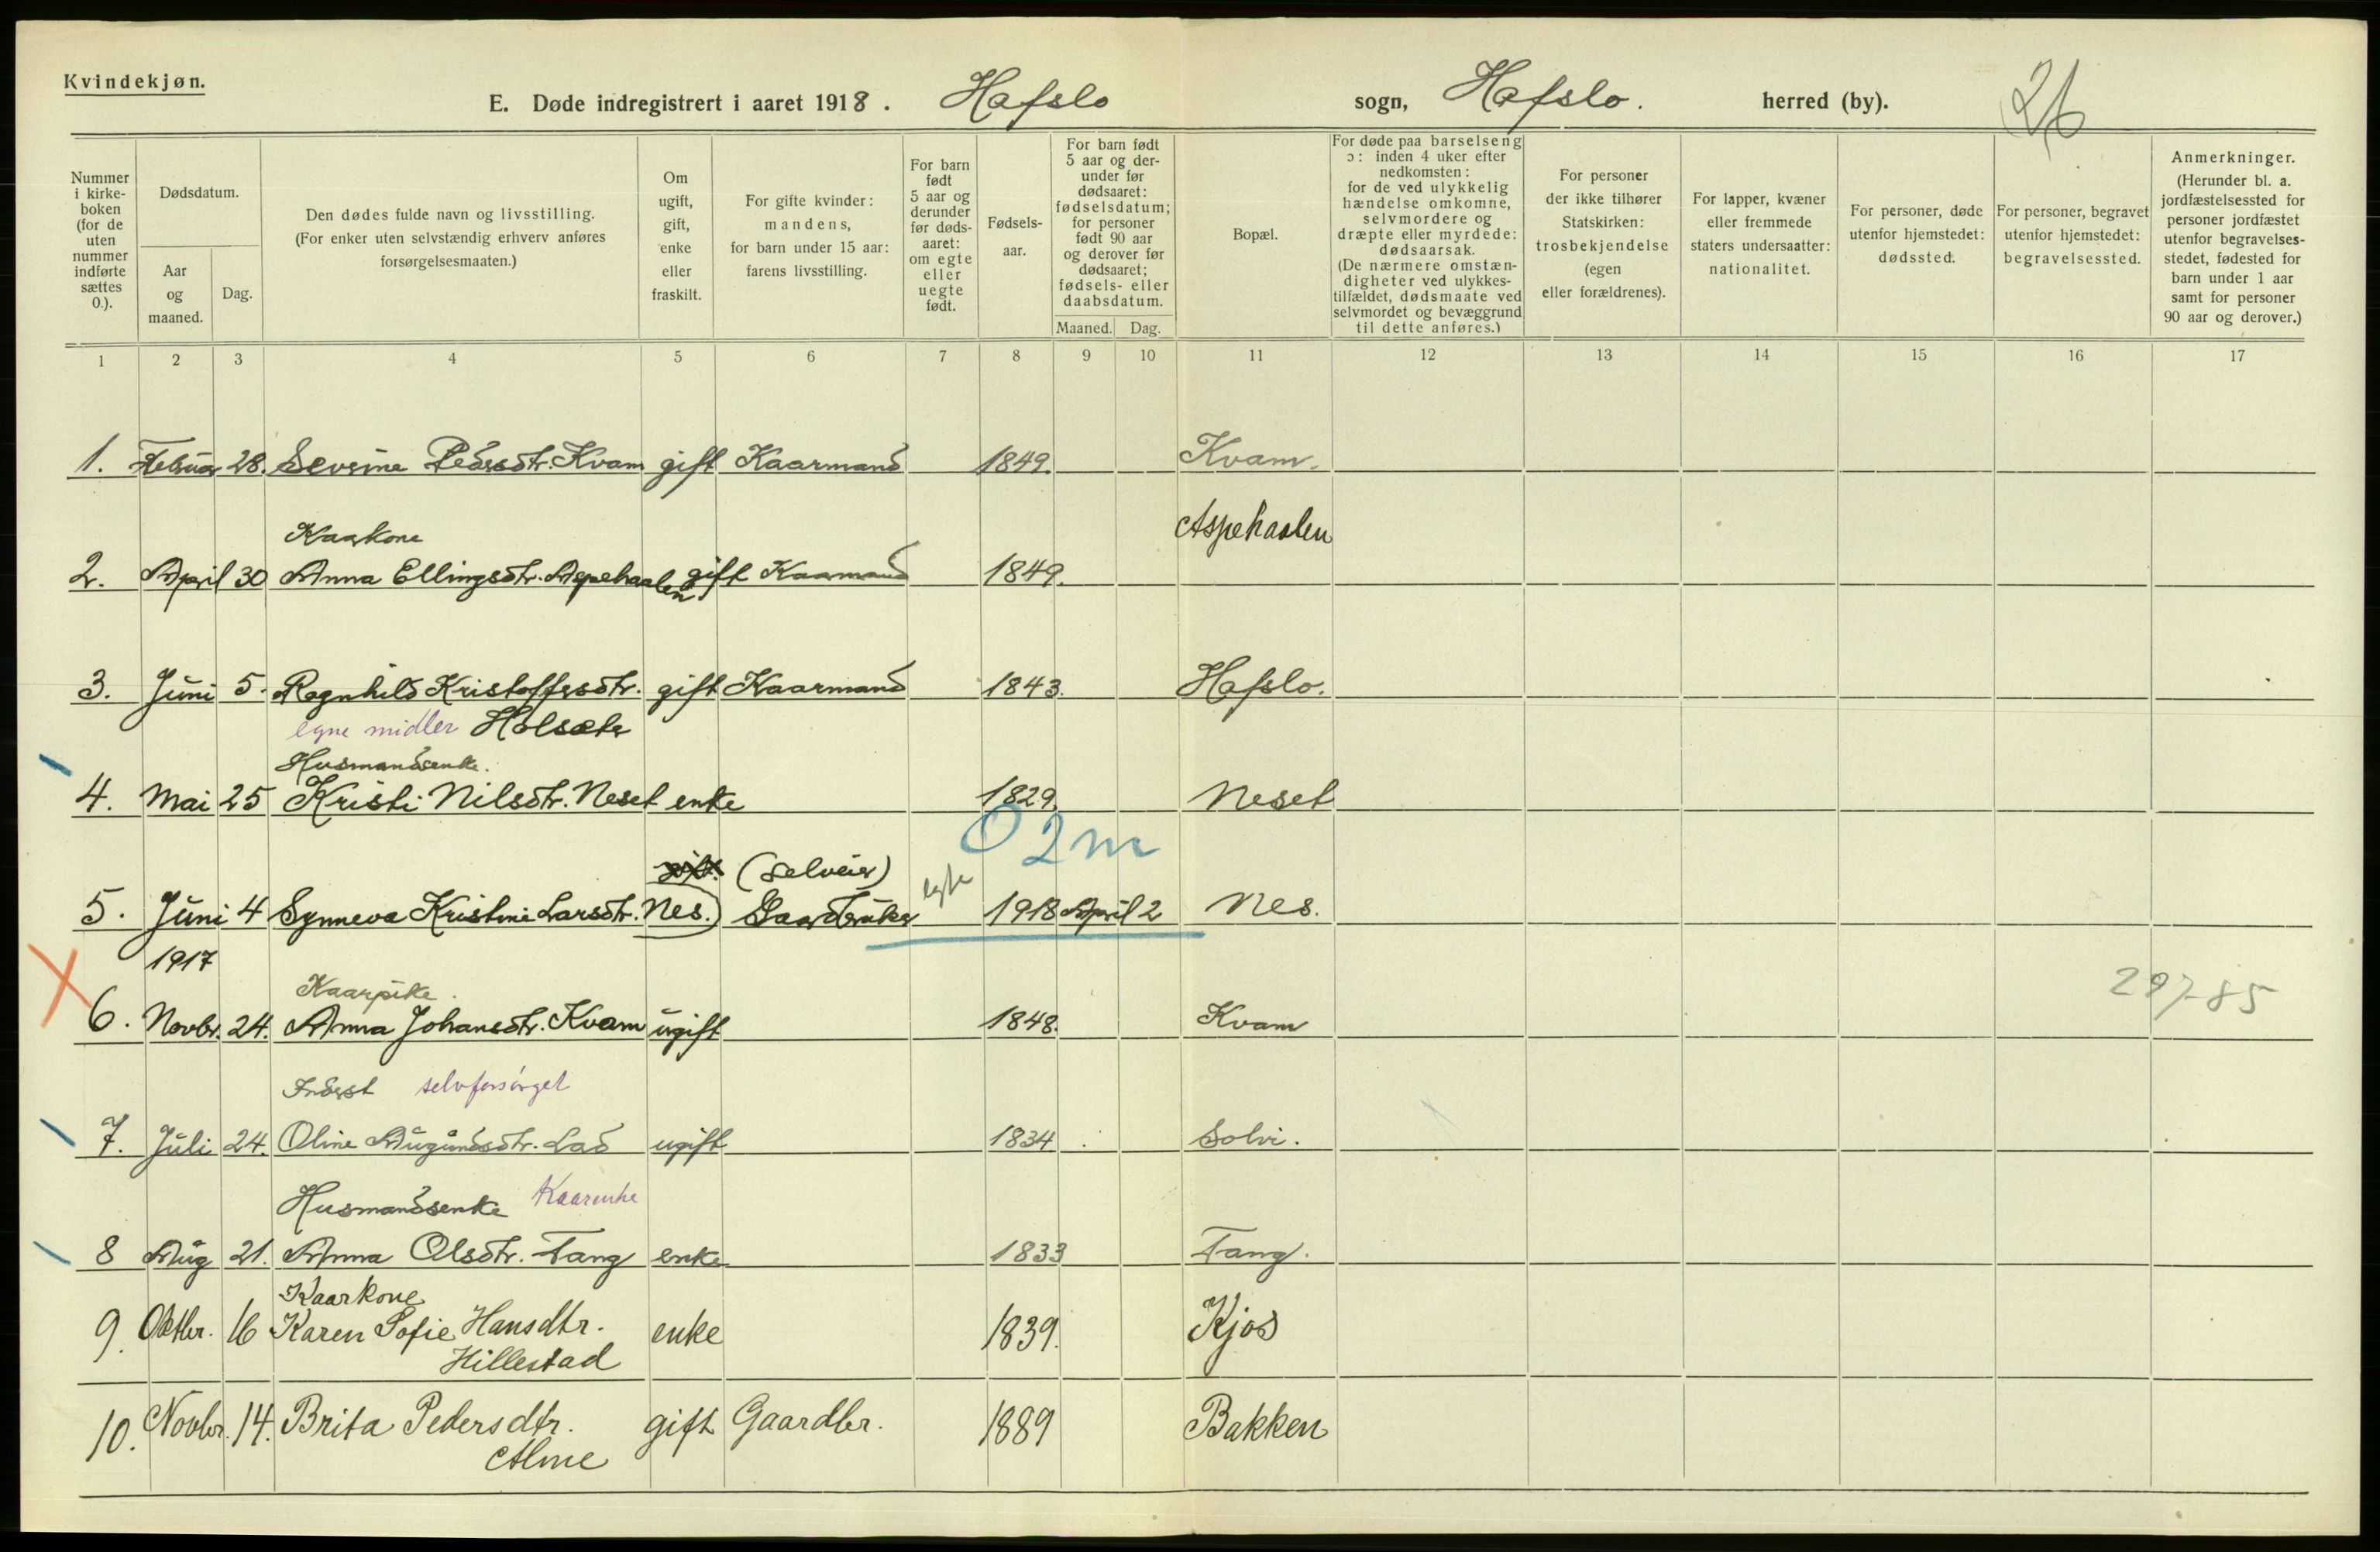 Kvindekjøn.
E. Døde indregistrert i aaret 1918. Hafslo sogn, Hafslo. herred (by). 26
Nummer i kirke-boken (for de uten nummer indførte sættes 0.).
Dødsdatum.
Aar og maaned.
Dag.
Den dødes fulde navn og livsstilling.
(For enker uten selvstændig erhverv anføres forsørgelsesmaaten.)
Om ugift, gift, enke eller fraskilt.
For gifte kvinder: mandens, for barn under 15 aar: farens livsstilling.
For barn født 5 aar og derunder før døds-aaret: om egte eller uegte født.
Fødsels-aar.
For barn født 5 aar og der-under før dødsaaret: fødselsdatum; for personer født 90 aar og derover før dødsaaret; fødsels- eller daabsdatum.
Maaned.
Dag.
Bopæl.
For døde paa barselseng ɔ: inden 4 uker efter nedkomsten: for de ved ulykkelig hændelse omkomne, selvmordere og dræpte eller myrdede: dødsaarsak. (De nærmere omstæn-digheter ved ulykkes-tilfældet, dødsmaate ved selvmordet og bevæggrund til dette anføres.)
For personer der ikke tilhører Statskirken: trosbekjendelse (egen eller forældrenes).
For lapper, kvæner eller fremmede staters undersaatter: nationalitet.
For personer, døde utenfor hjemstedet: dødssted.
For personer, begravet utenfor hjemstedet: begravelsessted.
Anmerkninger. (Herunder bl. a. jordfæstelsessted for personer jordfæstet utenfor begravelses-stedet, fødested for barn under 1 aar samt for personer 90 aar og derover.)
1 2 3 4 5 6 7 8 9 10 11 12 13 14 15 16 17
1. Februar 28. Severine Pedersdtr. Kvam gift Kaarmand 1849. Kvam.
Kaarkone Aspehaalen
2. April 30 Anna Ellingsdtr. Aspehaalen gift Kaarmand 1849.
3. Juni 5. Ragnhild Kristoffersdtr. gift Kaarmand 1843. Hafslo.
egne midler Holsæte
Husmandsenke.
4. Mai 25 Kristi Nilsdtr. Neset enke 1829. Neset
0 2m
gift. (selveier)
5. Juni 4 Synneva Kristine Larsdtr. Nes. Gaardbruker egte 1918 April 2 Nes.
1917
Kaarpike.
6. Novbr. 24. Anna Johansdtr. Kvam ugift 1848. Kvam 297-85
Inderst selvforsørget
7. Juli 24. Oline Augundsdtr. Lad ugift 1834. Solvi.
Husmandsenke Kaarenke
8 Aug 21. Anna Olsdtr. Tang enke 1833 Tang.
Kaarkone
9. Oktbr. 16 Karen Sofie Hansdtr. enke 1839. Kjos
Hillestad
10. Novbr. 14. Brita Pedersdtr. gift Gaardbr. 1889 Bakken
Alme